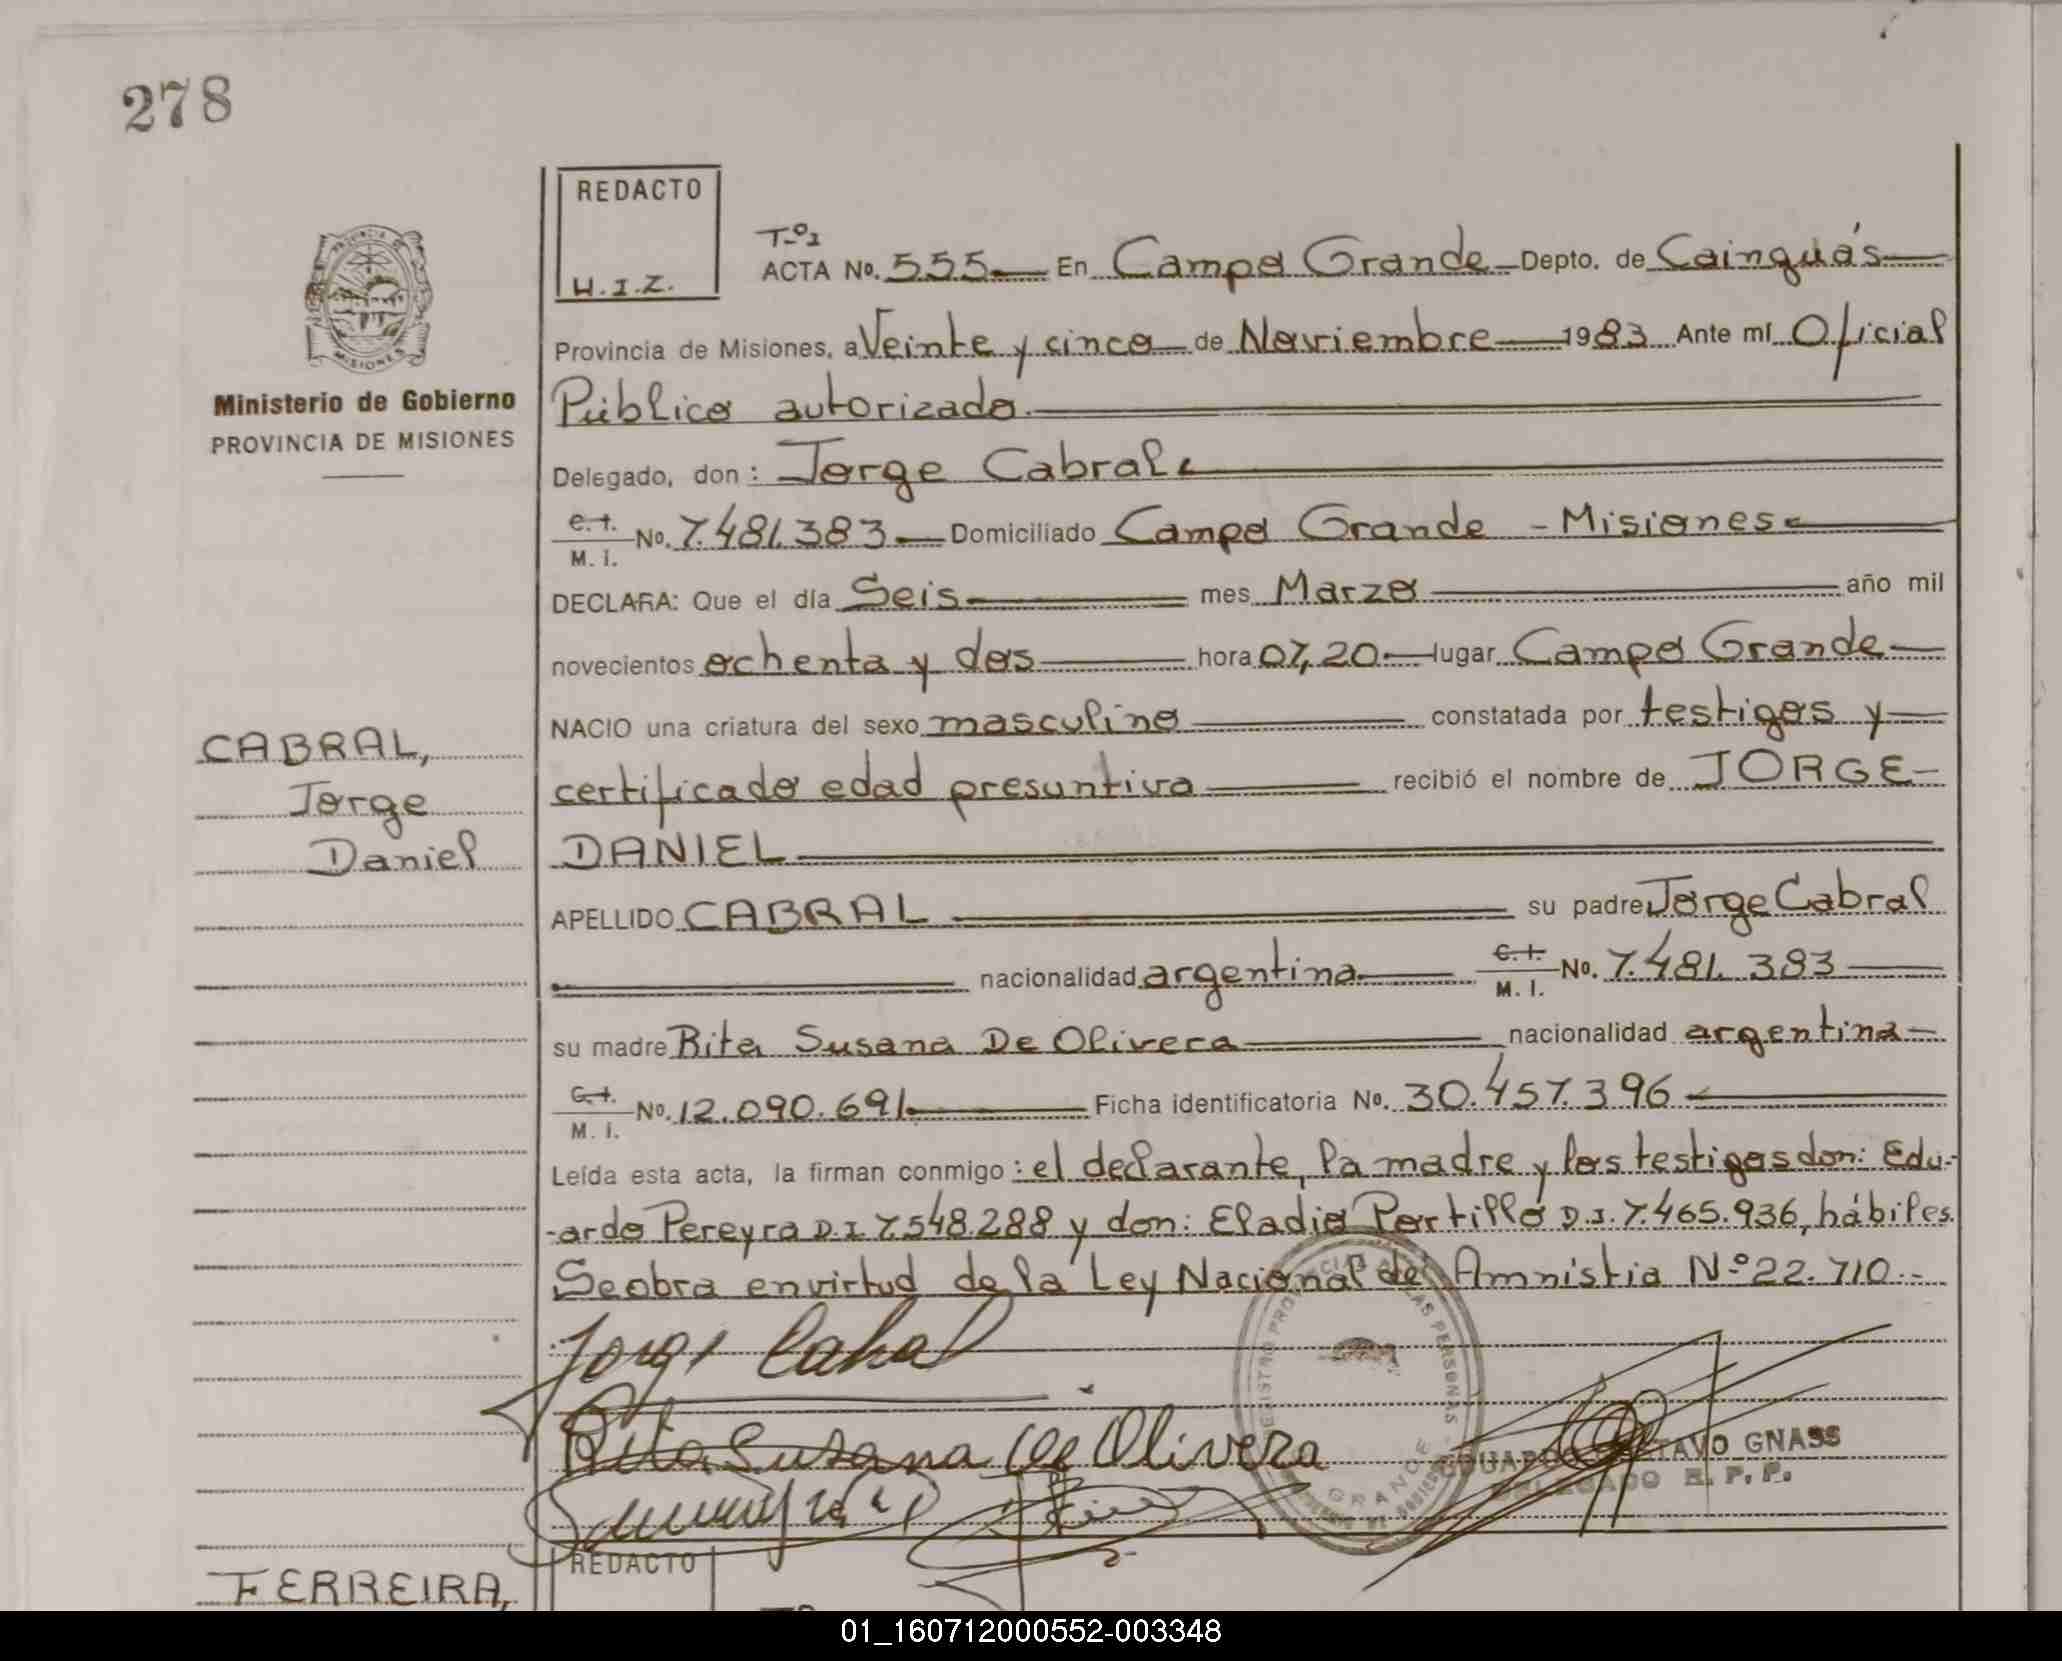 278
REDACTO
H.I.Z.
Tº1
ACTA Nº. 555 En Campo Grande Depto. de Cainguás
Provincia de Misiones, a Veinte y cinco de Noviembre 1983 Ante mí Oficial
Público autorizado.
Delegado, don: Jorge Cabral
C.I. M.I. Nº. 7.481.383 Domiciliado Campo Grande - Misiones
DECLARA: Que el día Seis mes Marzo año mil
novecientos ochenta y dos hora 07,20 lugar Campo Grande
NACIO una criatura del sexo masculino constatada por testigos y
certificado edad presuntiva recibió el nombre de JORGE
DANIEL
APELLIDO CABRAL su padre Jorge Cabral
nacionalidad argentina C.I. M.I. Nº. 7.481.383
su madre Rita Susana De Olivera nacionalidad argentina
C.I. M.I. Nº. 12.090.691 Ficha identificatoria Nº. 30.457.396
Leída esta acta, la firman conmigo: el declarante, la madre y los testigos don: Edu-
-ardo Pereyra D.I. 7.548.288 y don: Eladio Portillo D.I. 7.465.936, hábiles.
Se obra en virtud de la Ley Nacional de Amnistia Nº 22.710.-
Jorge Cabral
Rita Susana De Olivera
GNASS
DELEGADO R.P.P.
GRANDE
Ministerio de Gobierno
PROVINCIA DE MISIONES
CABRAL,
Jorge
Daniel
FERREIRA,
REDACTO
01_160712000552-003348